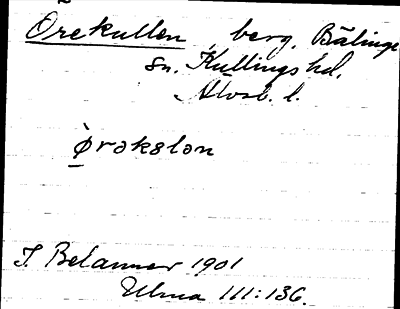 Örekullen berg. Bälinge
sn. Kullings hd.
Älvsb. l.
ø̀rəkələn
I. Belanner 1901
Ulma 111:136.